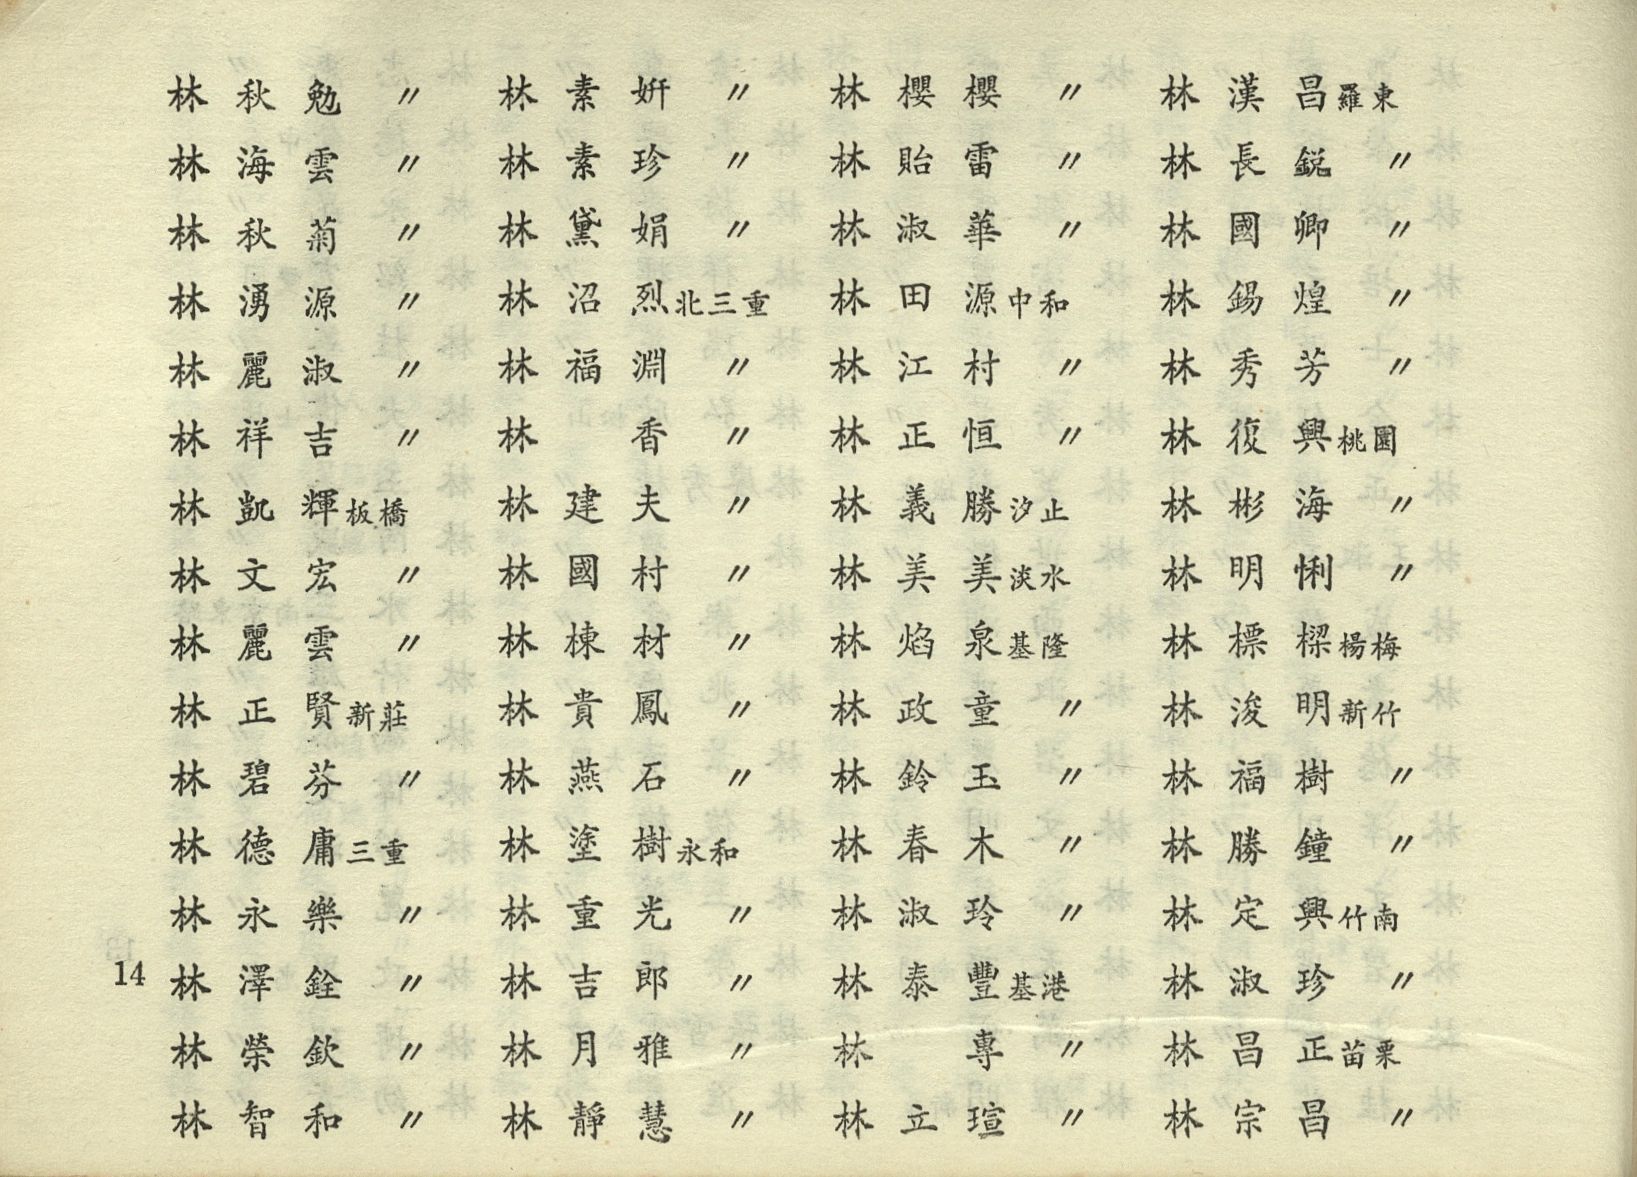 林秋勉 〃
林海雲 〃
林秋菊 〃
林湧源 〃
林麗淑 〃
林祥吉 〃
林凱輝 板橋
林文宏 〃
林麗雲 〃
林正賢 新莊
林碧芬 〃
林德庸 三重
林永樂 〃
林澤銓 〃
林榮欽 〃
林智和 〃
林素妍 〃
林素珍 〃
林黛娟 〃
林沼烈 北三重
林福淵 〃
林香 〃
林建夫 〃
林國村 〃
林棟材 〃
林貴鳳 〃
林燕石 〃
林塗樹 永和
林重光 〃
林吉郎 〃
林月雅 〃
林靜慧 〃
林櫻櫻 〃
林貽雷 〃
林淑華 〃
林田源 中和
林江村 〃
林正恒 〃
林義勝 汐止
林美美 淡水
林焰泉 基隆
林政童 〃
林鈴玉 〃
林春木 〃
林淑玲 〃
林泰豐 基港
林專 〃
林立瑄 〃
林漢昌 羅東
林長銳 〃
林國卿 〃
林錫煌 〃
林秀芳 〃
林復興 桃園
林彬海 〃
林明悧 〃
林標樑 楊梅
林浚明 新竹
林福樹 〃
林勝鐘 〃
林定興 竹南
林淑珍 〃
林昌正 苗栗
林宗昌 〃
14